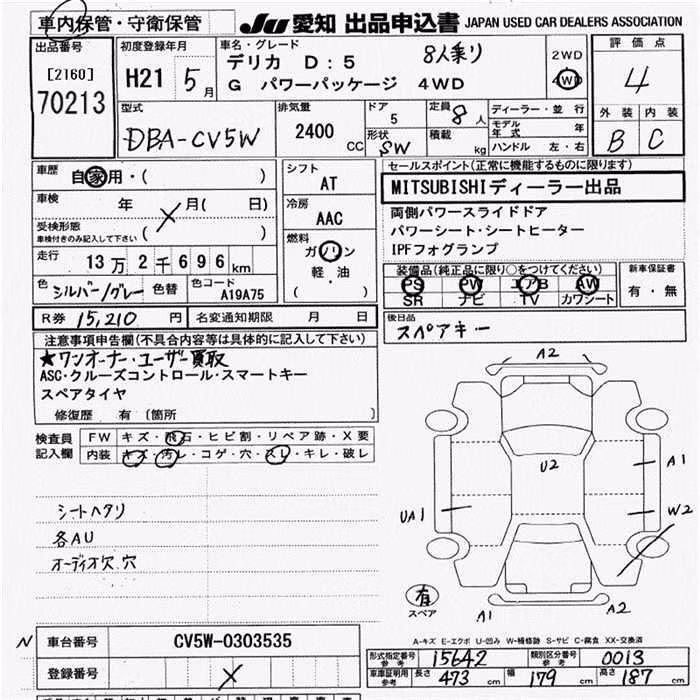 車内保管・守衛保管 JU 愛知 出品申込書 JAPAN USED CAR DEALERS ASSOCIATION
出品番号
[2160]
70213
初度登録年月
H21 5月
車名・グレード
デリカ D:5 8人乗り
G パワーパッケージ 4WD
2WD
4WD
評価点
4
外装 内装
B C
型式
DBA-CV5W
排気量
2400 CC
ドア
5
定員 8人
形状
SW
積載 kg
ディーラー・並行
モデル年式 年
ハンドル 左・右
車歴 自家用・( )
車検 年 月( 日)
受検形態
車検付きのみ記入して下さい ( )
走行 13万2千696km
色 シルバー/グレー 色替 色コード A19A75
シフト
AT
冷房
AAC
燃料
ガソリン
軽・油
( )
セールスポイント(正常に機能するものに限ります)
MITSUBISHIディーラー出品
両側パワースライドドア
パワーシート・シートヒーター
IPFフォグランプ
装備品(純正品に限り○をつけてください)
PS PW エアB AW
SR ナビ TV カワシート
新車保証書
有・無
R券 15,210円 名変通知期限 月 日
後日品
スペアキー
注意事項申告欄(不具合内容等は具体的に記入して下さい)
★ワンオーナー・ユーザー買取
ASC・クルーズコントロール・スマートキー
スペアタイヤ
修復歴 有 [箇所 ]
検査員記入欄
FW キズ・飛石・ヒビ割・リペア跡・X要
内装 キズ・汚レ・コゲ・穴・スレ・キレ・破レ
シートヘタリ
各AU
オーディオ欠、穴
A2
U2
A1
UA1
W2
有
スペア
A1
A2
A-キズ E-エクボ U-凹み W-補修跡 S-サビ C-腐食 XX-交換済
N 車台番号 CV5W-0303535
登録番号 X
形式指定番号 参考 15642 類別区分番号 参考 0013
車庫証明用 参考 長さ 473cm 幅 179cm 高さ 187cm